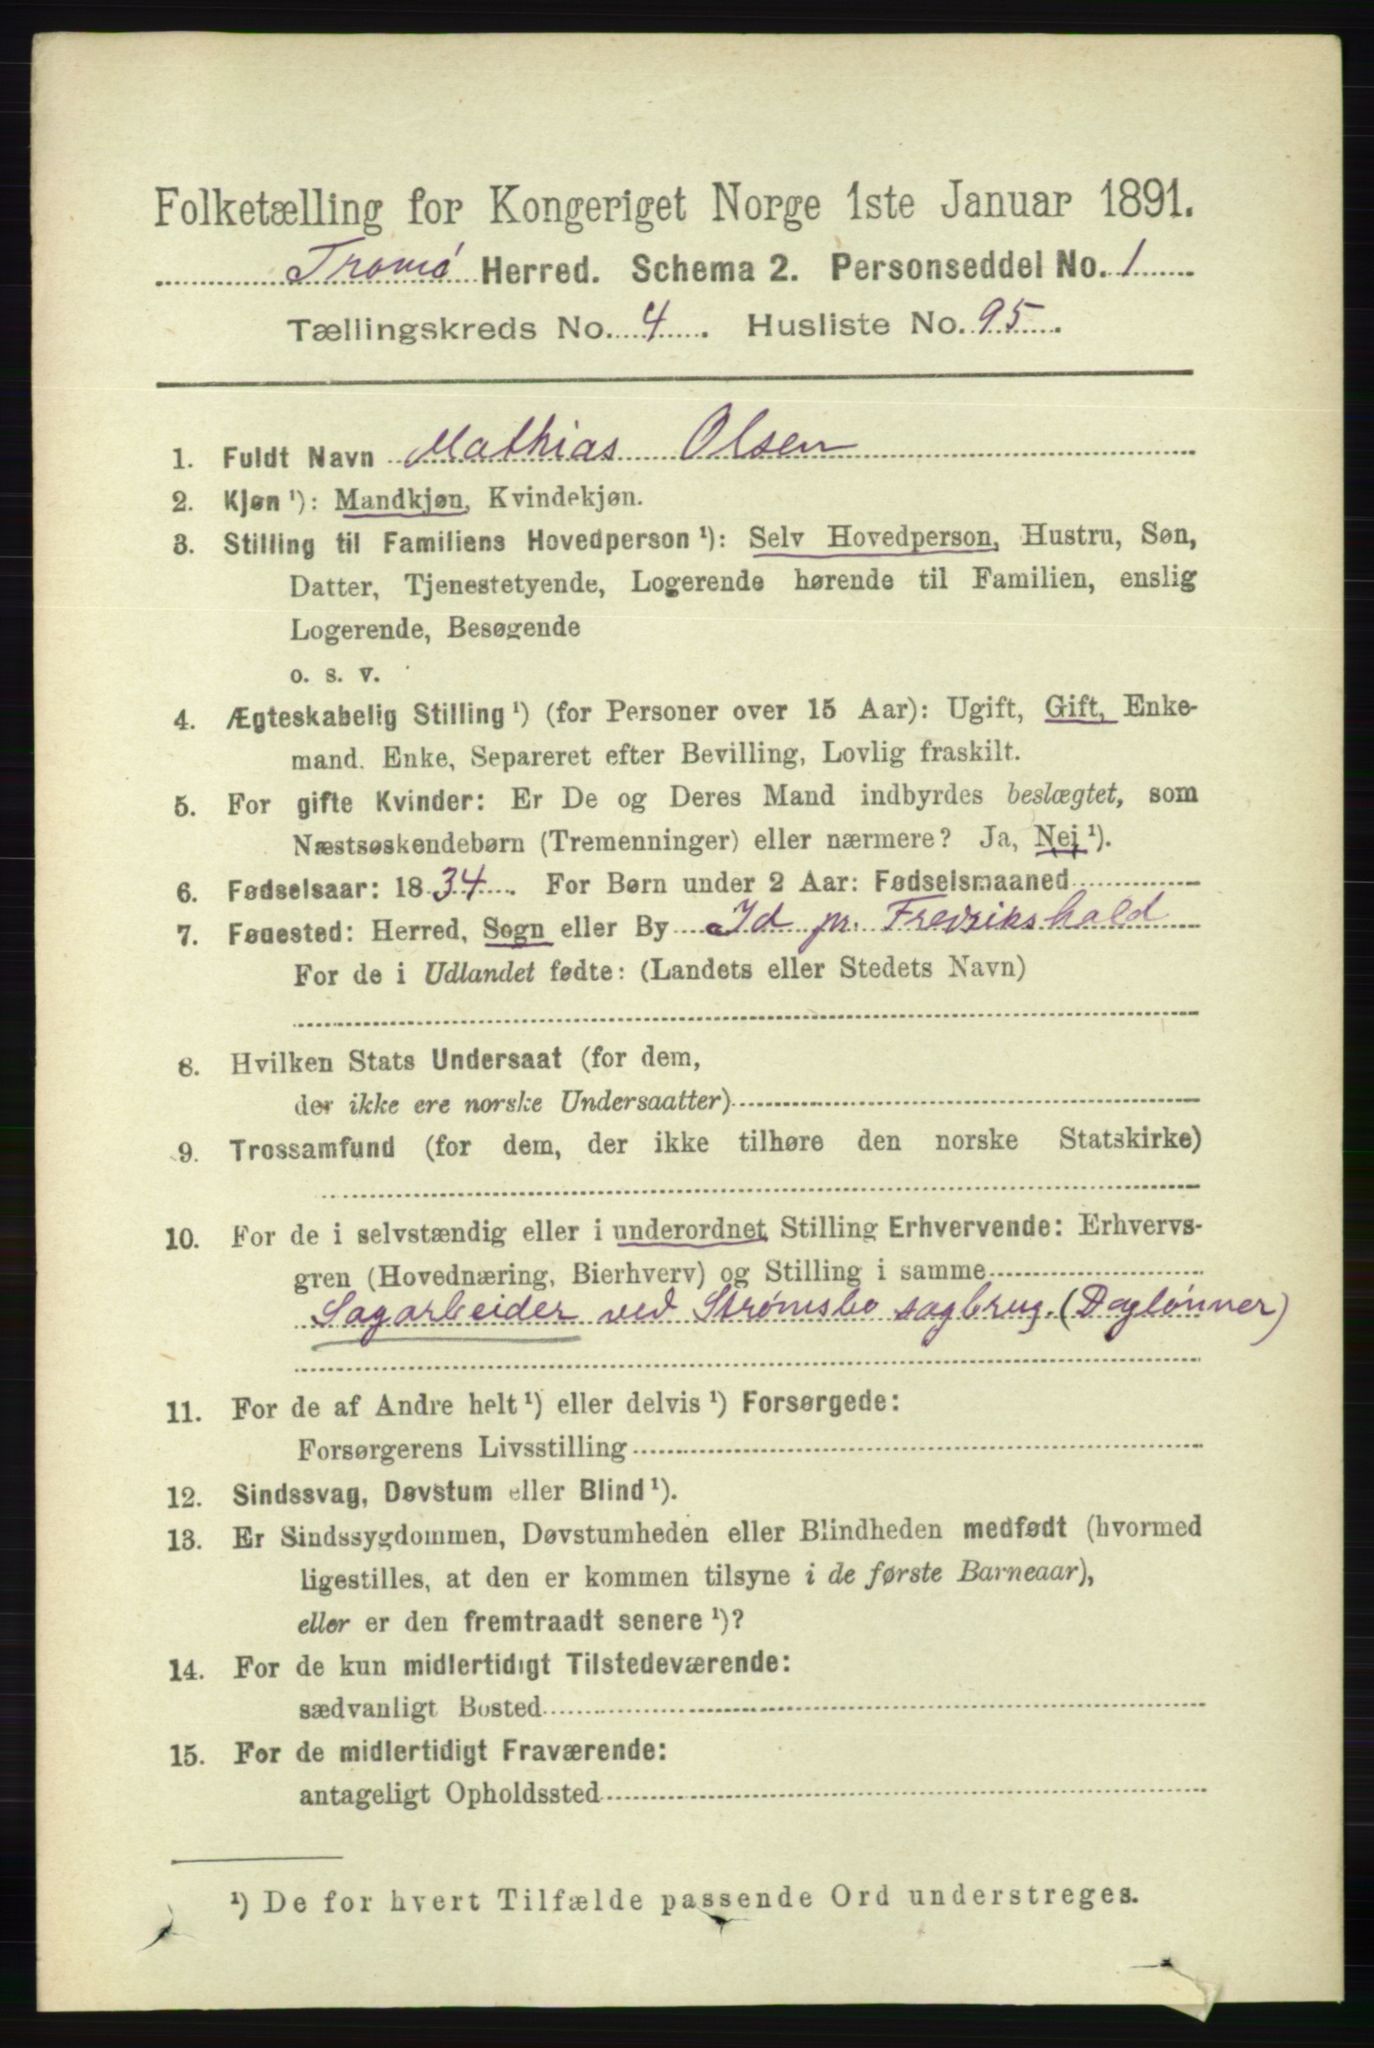 Folketælling for Kongeriget Norge 1ste Januar 1891.
Tromø Herred. Schema 2. Personseddel No. 1
Tællingskreds No. 4. Husliste No. 95.
1. Fuldt Navn Mathias Olsen
2. Kjøn ¹): Mandkjøn, Kvindekjøn.
3. Stilling til Familiens Hovedperson ¹): Selv Hovedperson, Hustru, Søn,
Datter, Tjenestetyende, Logerende hørende til Familien, enslig
Logerende, Besøgende
o. s. v.
4. Ægteskabelig Stilling ¹) (for Personer over 15 Aar): Ugift, Gift, Enke-
mand. Enke, Separeret efter Bevilling, Lovlig fraskilt.
5. For gifte Kvinder: Er De og Deres Mand indbyrdes beslægtet, som
Næstsøskendebørn (Tremenninger) eller nærmere? Ja, Nei ¹).
6. Fødselsaar: 1834. For Børn under 2 Aar: Fødselsmaaned
7. Fødested: Herred, Sogn eller By Id pr. Fredrikshald
For de i Udlandet fødte: (Landets eller Stedets Navn)
8. Hvilken Stats Undersaat (for dem,
der ikke ere norske Undersaatter)
9. Trossamfund (for dem, der ikke tilhøre den norske Statskirke)
10. For de i selvstændig eller i underordnet Stilling Erhvervende: Erhvervs-
gren (Hovednæring, Bierhverv) og Stilling i samme
Sagarbeider ved Strømsbo sagbrug. (Daglønner)
11. For de af Andre helt ¹) eller delvis ¹) Forsørgede:
Forsørgerens Livsstilling
12. Sindssvag, Døvstum eller Blind ¹).
13. Er Sindssygdommen, Døvstumheden eller Blindheden medfødt (hvormed
ligestilles, at den er kommen tilsyne i de første Barneaar),
eller er den fremtraadt senere ¹)?
14. For de kun midlertidigt Tilstedeværende:
sædvanligt Bosted
15. For de midlertidigt Fraværende:
antageligt Opholdssted
¹) De for hvert Tilfælde passende Ord understreges.